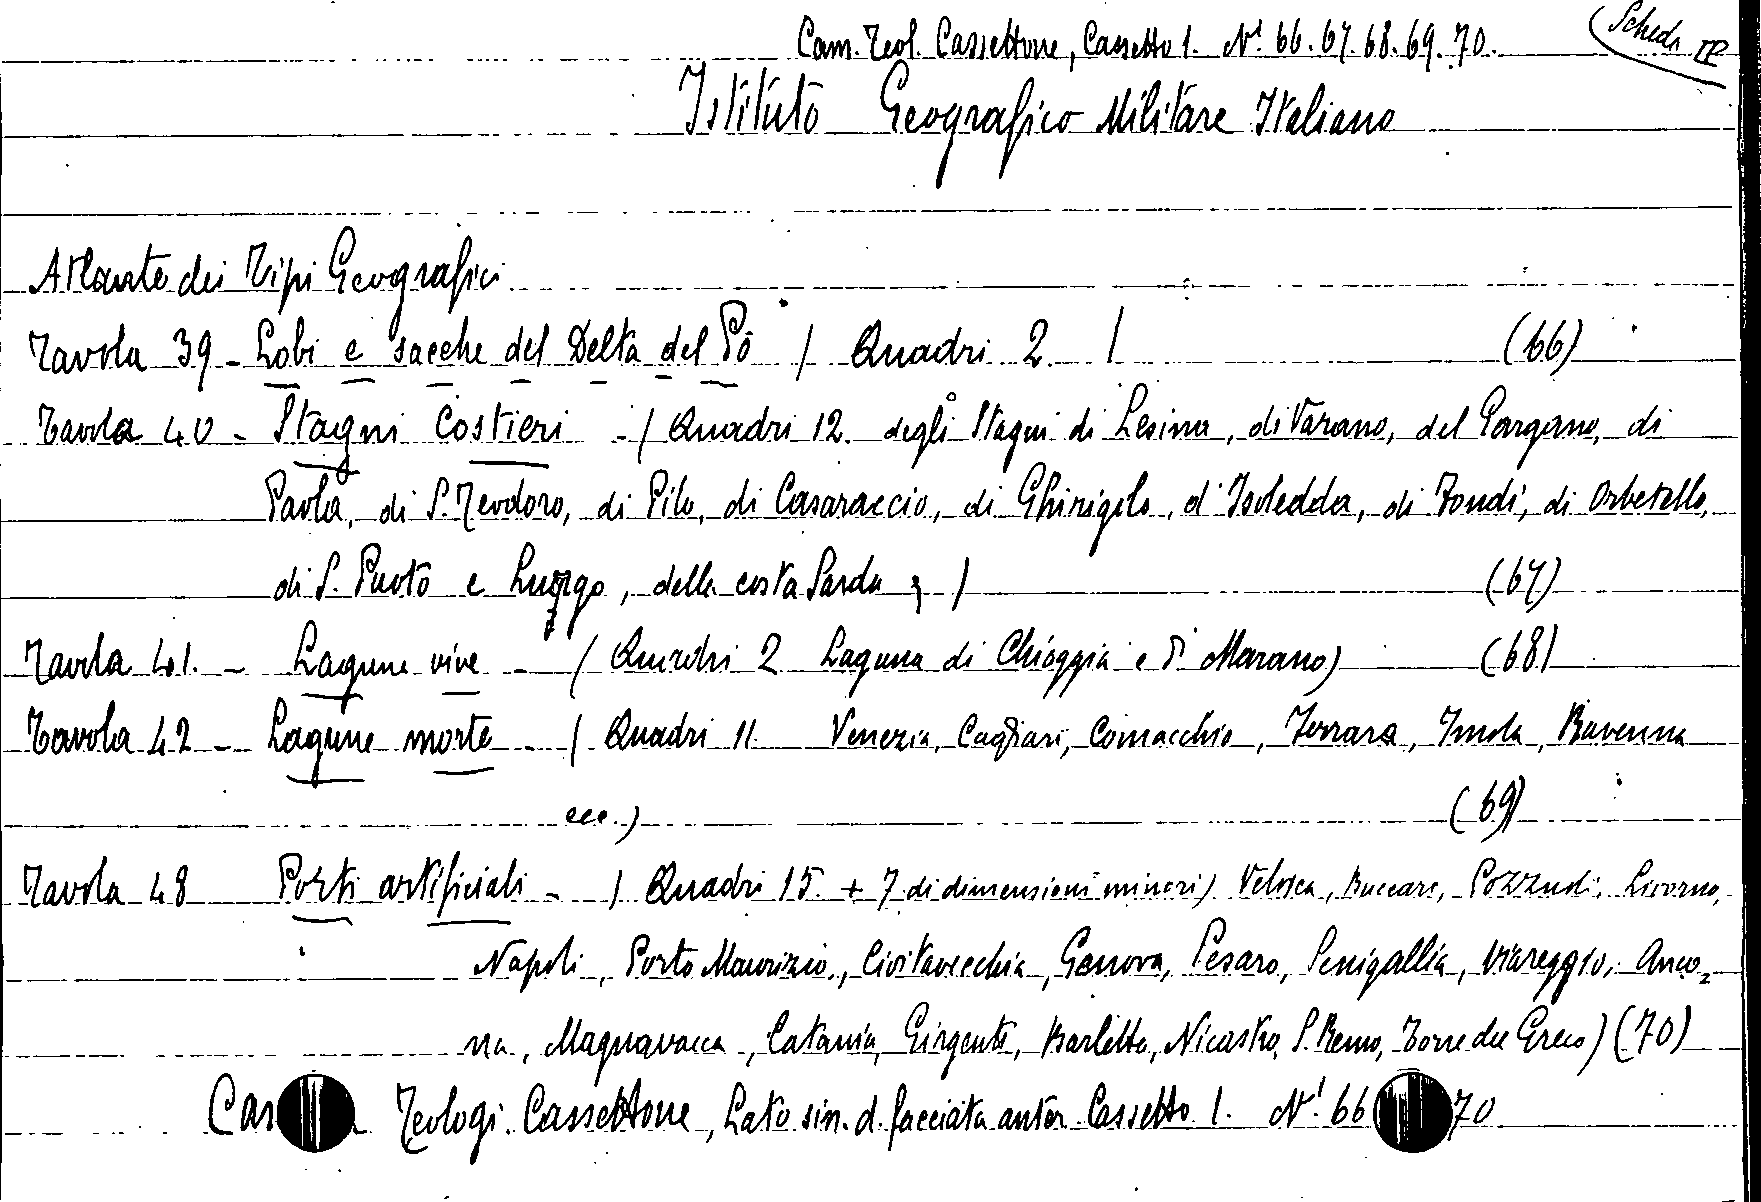 Cam. Teol. Cassettone, Cassetto 1. Nⁱ 66. 67. 68. 69. 70.
(Scheda IV
Istituto Geografico Militare Italiano
Atlante dei Tipi Geografici
Tavola 39 - Lobi e sacche del Delta del Pò / Quadri 2. / (66)
Tavola 40 - Stagni Costieri - / Quadri 12. degli Stagni di Lesina, di Varano, del Gargano, di
Paola, di S. Teodoro, di Pilo, di Casaraccio, di Ghirigolo, d'Isoledda, di Fondi, di Orbetello,
di S. Puoto e Lungo, della costa Sarda ; / (67)
Tavola 41. - Lagune vive - ( Quadri 2 Laguna di Chioggia e di Marano) (68)
Tavola 42 - Lagune morte - ( Quadri 11. Venezia, Cagliari, Comacchio, Ferrara, Imola, Ravenna
ecc.) (69)
Tavola 48 Porti artificiali - / Quadri 15. + 7 di dimensioni minori) Buccari, Livorno,
Napoli, Porto Maurizio, Civitavecchia, Genova, Pesaro, Senigallia, Viareggio, Anco=
na, Magnavacca, Catania, Girgenti, Barletta, Nicastro, S. Remo, Torre del Greco) (70)
Teologi. Cassettone, Lato sin. d. facciata anter. Cassetto 1. Nⁱ 66 70